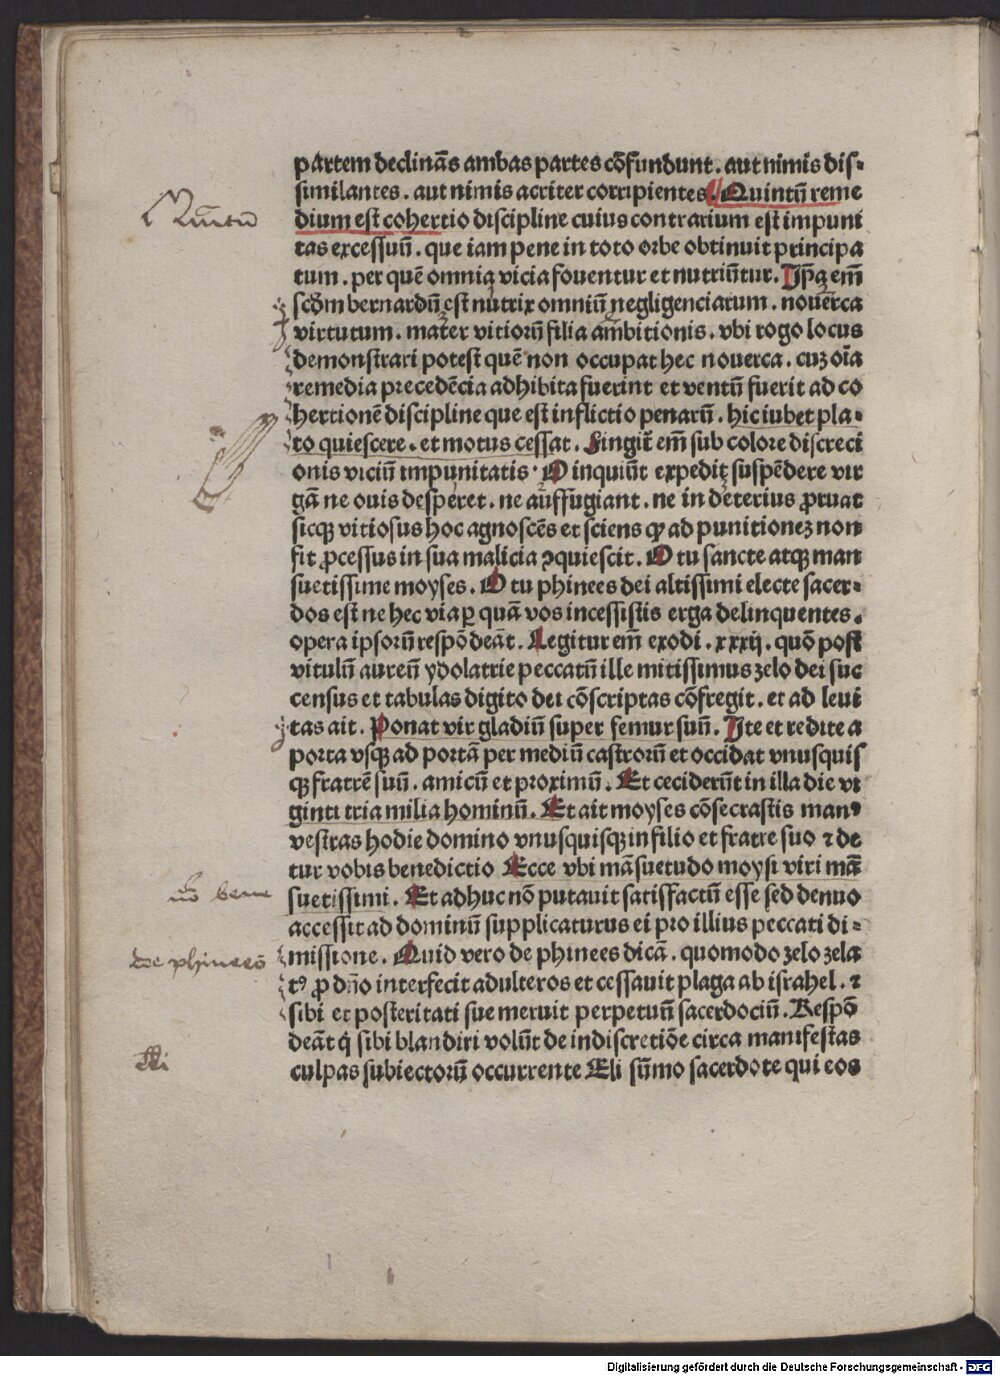 partem declinãs ambas partes cõfundunt. aut nimis dis-
similantes. aut nimis acriter corripientes. Quintũ reme
dium est cohertio discipline cuius contrarium est impuni
tas excessuũ. que iam pene in toto orbe obtinuit principa
tum. per quẽ omnia vicia fouentur et nutriũtur. Ipa em̃
scd̃m bernardũ est nutrix omniũ negligenciarum. nouerca
virtutum. mater vitiorũ filia ambitionis. vbi rogo locus
demonstrari potest quẽ non occupat hec nouerca. cuz oĩa
remedia precedẽcia adhibita fuerint et ventũ fuerit ad co
hertionẽ discipline que est inflictio penarũ. hic iubet pla-
to quiescere. et motus cessat. Fingit̃ em̃ sub colore discreci
onis viciũ impunitatis. O inquiũt expedit suspẽdere vir
gã ne ouis desperet. ne auffugiant. ne in deterius ꝓruat
sicqꝫ vitiosus hoc agnoscẽs et sciens ꝙ ad punitionez non
fit ꝓcessus in sua malicia ꝯquiescit. O tu sancte atqꝫ man
suetissime moyses. O tu phinees dei altissimi electe sacer-
dos est ne hec via ꝑ quã vos incessistis erga delinquentes.
opera ipsorũ respõdeãt. Legitur em̃ exodi. xxxij. quõ post
vitulũ aureũ ydolatrie peccatũ ille mitissimus zelo dei suc
census et tabulas digito dei cõscriptas cõfregit. et ad leui
tas ait. Ponat vir gladiũ super femur suũ. Ite et redite a
porta vsqꝫ ad portã per mediũ castrorũ et occidat vnusquis
qꝫ fratrẽ suũ. amicũ et proximũ. Et ceciderũt in illa die vi
ginti tria milia hominũ. Et ait moyses cõsecrastis manꝰ
vestras hodie domino vnusquisqꝫ in filio et fratre suo ⁊ de
tur vobis benedictio Ecce vbi mãsuetudo moysi viri mã
suetissimi. Et adhuc nõ putauit satisfactũ esse sed denuo
accessit ad dominũ supplicaturus ei pro illius peccati di-
missione. Quid vero de phinees dicã. quomodo zelo zela
tꝰ ꝓ dño interfecit adulteros et cessauit plaga ab israhel. ⁊
sibi et posteritati sue meruit perpetuũ sacerdociũ. Respõ
deãt q̇ sibi blandiri volũt de indiscretiõe circa manifestas
culpas subiectorũ occurrente Eli sũmo sacerdote qui eos
nõ bene
de phinees
Digitalisierung gefördert durch die Deutsche Forschungsgemeinschaft - DFG